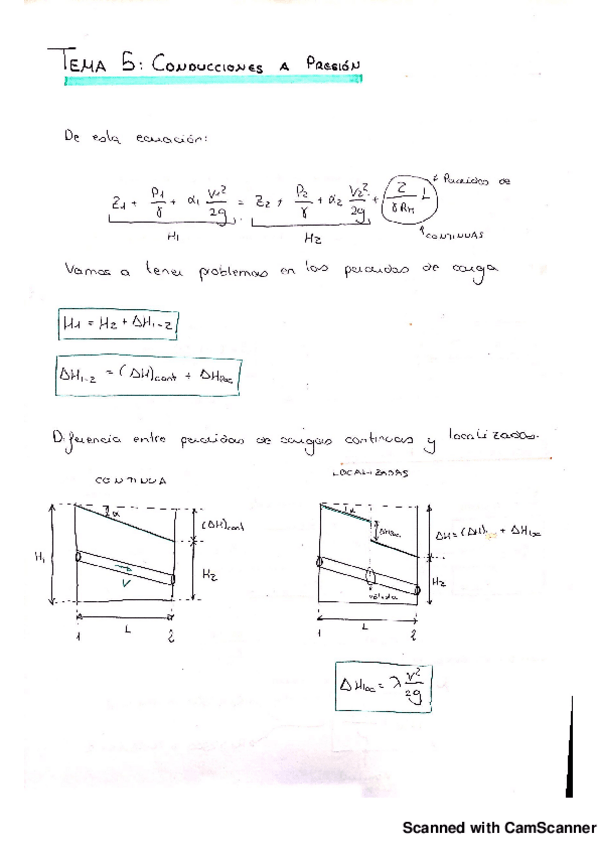 TEMA 5: CONDUCCIONES A PRESIÓN
De esta ecuación:
Z1 + P1/γ + α1 V1²/2g = Z2 + P2/γ + α2 V2²/2g + Z/γRH L
Perdidas de
CONTINUAS
H1
H2
Vamos a tener problemas en las perdidas de carga
H1 = H2 + ΔH1-2
ΔH1-2 = (ΔH)cont + ΔHloc
Diferencia entre perdidas de cargas continuas y localizadas.
CONTINUA
LOCALIZADAS
α
(ΔH)cont
H1
H2
V
L
1
2
α
ΔHloc
ΔH = (ΔH) + ΔHloc
H2
L
1
2
ΔHloc = λ V²/2g
Scanned with CamScanner